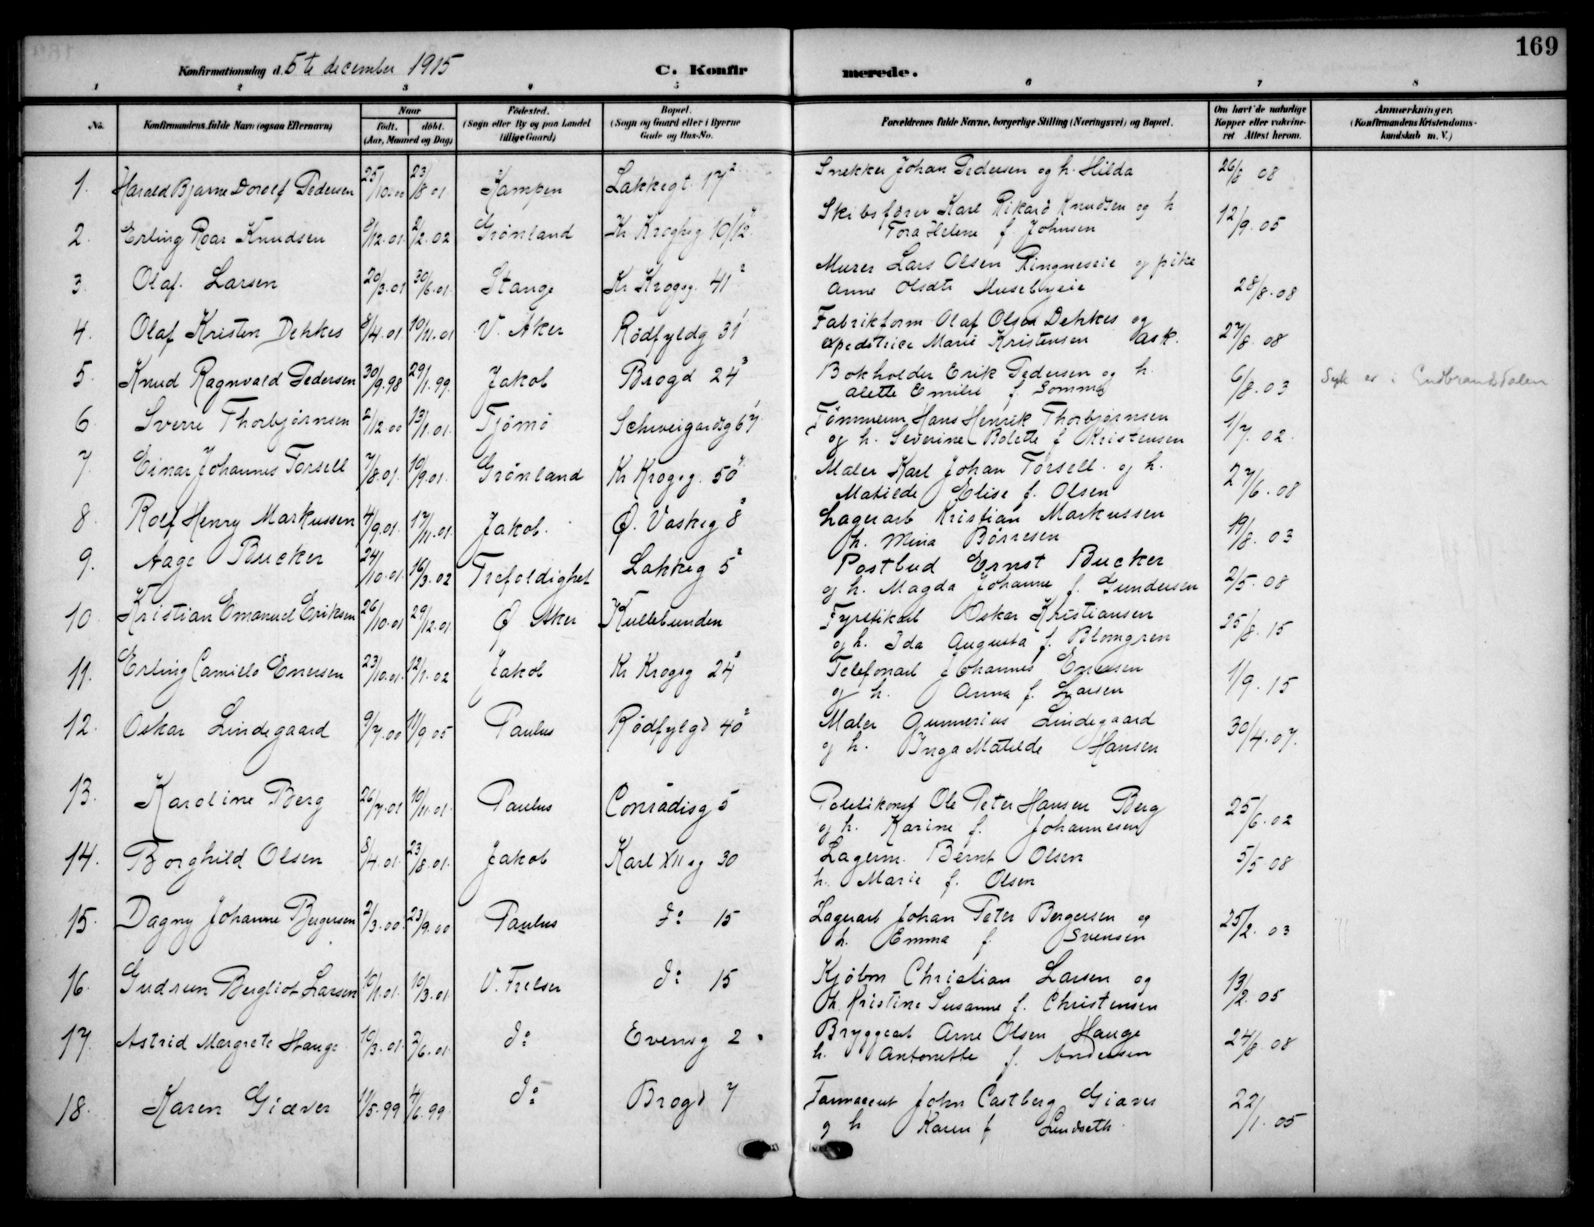 169
Konfirmationsdag d. 5te december 1915 C. Konfirmerede.
1 2 3 4 5 6 7 8
No. Konfirmandens fulde Navn (ogsaa Efternavn) Naar født. døbt. (Aar, Maaned og Dag) Fødested. (Sogn eller By og paa Landet tillige Gaard) Bopæl. (Sogn og Gaard eller i Byerne Gade og Hus-No. Forældrenes fulde Navne, borgerlige Stilling (Næringsvei) og Bopæl. Om havt de naturlige Kopper eller vakcineret Attest herom. Anmærkninger. (Konfirmandens Kristendomskundskab m. V.)
1. Harald Bjarne Dorolf Pedersen 25/10.00 23/8.01 Kampen Lakkegt. 17² Snekker Johan Pedersen og h. Hilda 26/8 08
2. Erling Roar Knudsen 9/12.01 2/2.02 Grönland Kr Kroghsg 10/12 Skibsfører Karl Rikard Knudsen og h
Tora Helene f Johnsen 12/9.05
3. Olaf Larsen 20/3.01 30/6.01 Stange Kr Krogsg. 41² Murer Lars Olsen Ringneseie og pike
Anne Olsdtr Musebyeie 28/8.08
4. Olaf Kristen Dehkes 8/4.01 10/11.01 V. Aker Rödfyldg 31 Fabrikform Olaf Olsen Dehkes og
expeditrice Marie Kristensen Ask. 27/8 08
5. Knud Ragnvald Pedersen 30/9.98 29/1.99. Jakob Brogd 24³ Bokholder Erik Pedersen og h.
Alette Emilie f. Somme 6/8.03 Syk er i Gudbrandsdalen
6. Sverre Thorbjørnsen 2/12 00 13/1.01. Tjömö Schweigaardsg 67 Tömmerm Hans Henrik Thorbjørnsen
og h. Severine Bolette f Kristensen 1/7. 02.
7. Einar Johannes Torsell 7/8.01 10/9.01. Grönland Kr Krogsg. 50 Maler Karl Johan Torsell og h.
Matilde Elise f. Olsen 27/6.08
8. Rolf Henry Markussen 4/9.01. 17/11.01. Jakob. Ø. Vaskeg 8³ Lagerarb Kristian Markussen
h. Mina Børresen 19/8. 03
9. Aage Bucker 24/10.01 16/3.02 Trefoldighet Lakkeg 5² Postbud Ernst Bucker
og h. Magda Johanne f. Gundersen 2/5.08
10. Kristian Emanuel Eriksen 26/10.01 29/12.01 Ø Aker Kullebunden Fyrstikarb Oskar Kristiansen
og h. Ida Augusta f. Blomgren 25/8.15
11. Erling Camillo Enersen 23/10.01. 12/1.02 Jakob Kr Krogsg 24² Telefonarb Johannes Enersen
og h. Anna f. Larsen 1/9.15
12. Oskar Lindegaard 9/7.00 17/9 05 Paulus Rödfylgd 40² Maler Gunnerius Lindegaard
og h. Inga Matilde Hansen 30/4.07.
13. Karoline Berg 26/7.01 10/11.01. Paulus Conradisg 5 Politikonst Ole Peter Hansen Berg
og h. Karine f. Johannesen 25/6.02
14. Borghild Olsen 8/4.01. 23/8.01. Jakob Karl XII g 30 Lagerm. Bernt Olsen
h. Marie f. Olsen 5/5 08
15. Dagny Johanne Bergersen 2/3.00. 23/9.00 Paulus do 15 Lagerarb Johan Peter Bergersen og
h. Emma f. Svensen 25/2. 03
16. Gudrun Bergliot Larsen 10/1.01. 10/3.01. V. Frelser do 15 Kjøbm Christian Larsen og
h. Kristine Susanne f. Christensen 13/2.05
17. Astrid Margrete Hauge 10/3.01. 2/6.01. do Evensg 2. Bryggearb Arne Olsen Hauge
h. Antonette f. Andersen 24/8 08
18. Karen Giæver 11/5.99 4/6.99. do Brogd 7 Farmaceut John Castberg Giæver
og h Karen f Lindseth 22/1.05